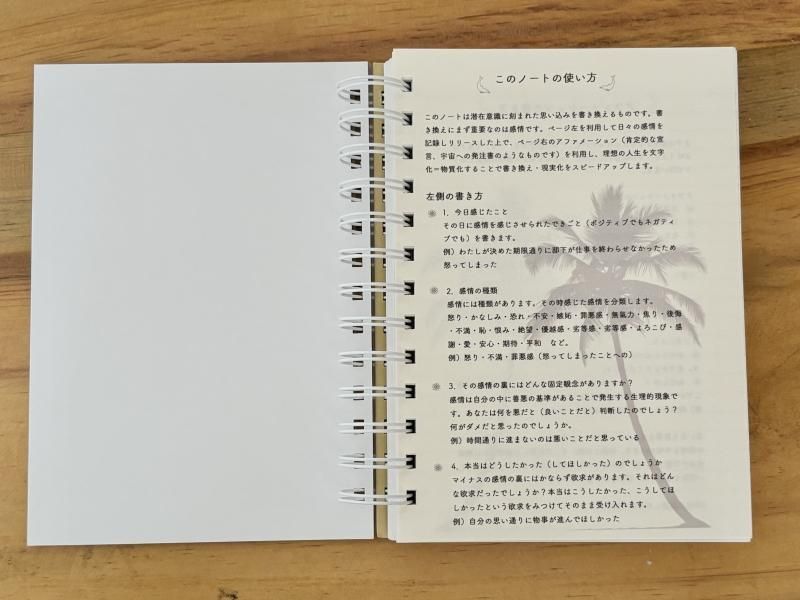 このノートの使い方
このノートは潜在意識に刻まれた思い込みを書き換えるものです。書
き換えにまず重要なのは感情です。ページ左を利用して日々の感情を
記録しリリースした上で、ページ右のアファメーション（肯定的な宣
言、宇宙への発注書のようなものです）を利用し、理想の人生を文字
化＝物質化することで書き換え・現実化をスピードアップします。
左側の書き方
1．今日感じたこと
その日に感情を感じさせられたできごと（ポジティブでもネガティ
ブでも）を書きます。
例）わたしが決めた期限通りに部下が仕事を終わらせなかったため
怒ってしまった
2．感情の種類
感情には種類があります。その時感じた感情を分類します。
怒り・かなしみ・恐れ・不安・嫉妬・罪悪感・無氣力・焦り・後悔
・不満・恥・恨み・絶望・優越感・劣等感・劣等感・よろこび・感
謝・愛・安心・期待・平和　など。
例）怒り・不満・罪悪感（怒ってしまったことへの）
3．その感情の裏にはどんな固定観念がありますか？
感情は自分の中に善悪の基準があることで発生する生理的現象で
す。あなたは何を悪だと（良いことだと）判断したのでしょう？
何がダメだと思ったのでしょうか。
例）時間通りに進まないのは悪いことだと思っている
4．本当はどうしたかった（してほしかった）のでしょうか
マイナスの感情の裏にはかならず欲求があります。それはどん
な欲求だったでしょうか？本当はこうしたかった、こうしてほ
しかったという欲求をみつけてそのまま受け入れます。
例）自分の思い通りに物事が進んでほしかった